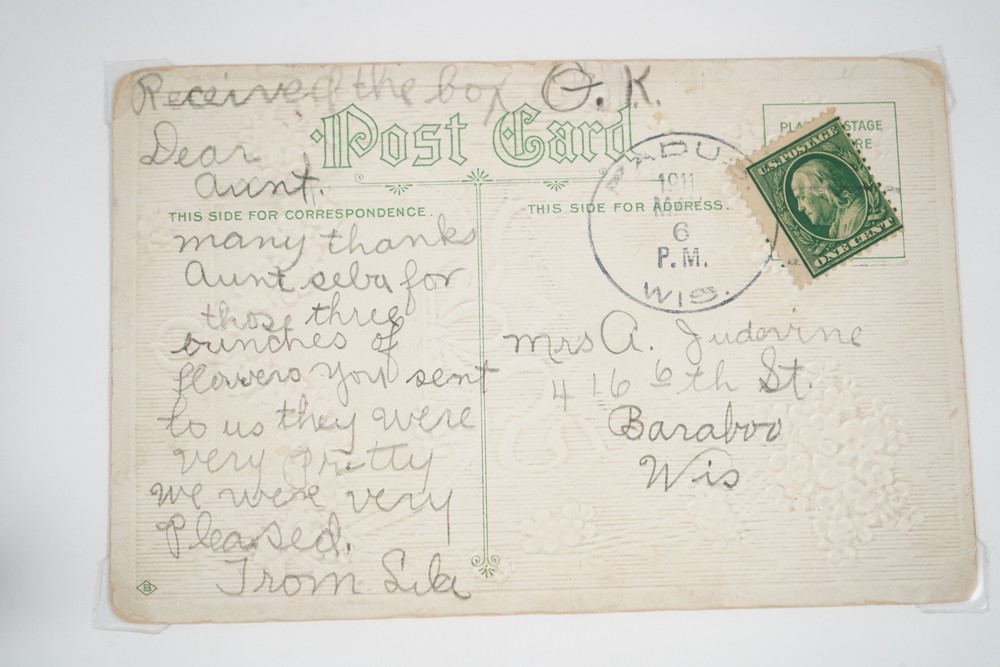 Received the box O.K.
Post Card
Dear
Aunt.
THIS SIDE FOR CORRESPONDENCE.
many thanks
Aunt seba for
those three
bunches of
flowers you sent
to us they were
very pretty
we were very
Pleased.
From
B
THIS SIDE FOR ADDRESS.
1911
6
P.M.
WIS.
U.S. POSTAGE
ONE CENT
Mrs A. Judevine
416 6th St.
Baraboo
Wis